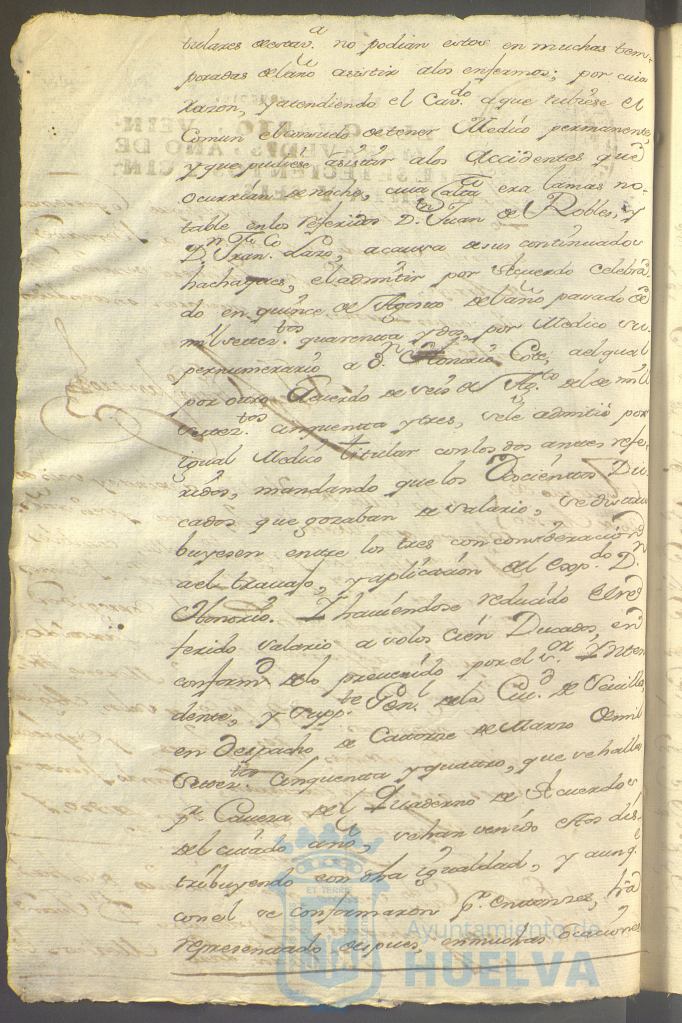 tulares de esta v.a no podian estos en muchas tem-
poradas del año asistir a los enfermos; por cuia
razon, y atendiendo el Cav.do a que tubiese el
Comun el consuelo de tener Medico permanente,
y que pudiese asistir a los Accidentes que
ocurrian de noche, cuia falta era la mas no-
table en los referidos D.n Juan de Robles, y
D.n Fran.co Lazo, a causa de sus continuados
hachaques, el admitir por Acuerdo celebra-
do en quince de Agosto del año pasado de
mil setez.tos quarenta y dos, por Medico su-
pernumerario a D.n Honorio Cote, a el qual
por otro Acuerdo de seis de Ag.to del de mil
setez.tos cinquenta y tres, se le admitio por
igual Medico titular con los dos antes refe-
ridos, mandando que los Doscientos Du-
cados que gozaban de salario, se distri-
buyesen entre los tres con consideracion
a el travajo, y aplicacion del exp.do D.n
Honorio. Y haviendose reducido el re-
ferido salario a solos cien Ducados, en
conform.d de lo prevenido por el S.or Ynten-
dente, y Supp.te Gen.l de la Ciu.d de Sevilla
en Despacho de Catorze de Marzo de mil
setez.tos cinquenta y quatro, que se halla
p.r Caveza del Quaderno de Acuerdos
del citado año, se han venido estos dis-
tribuyendo con dha igualdad, y aunq.e
con el se conformaron p.r entonces, ha
representado despues, en muchas ocaciones
ET TERRÆ
Ayuntamiento de
HUELVA